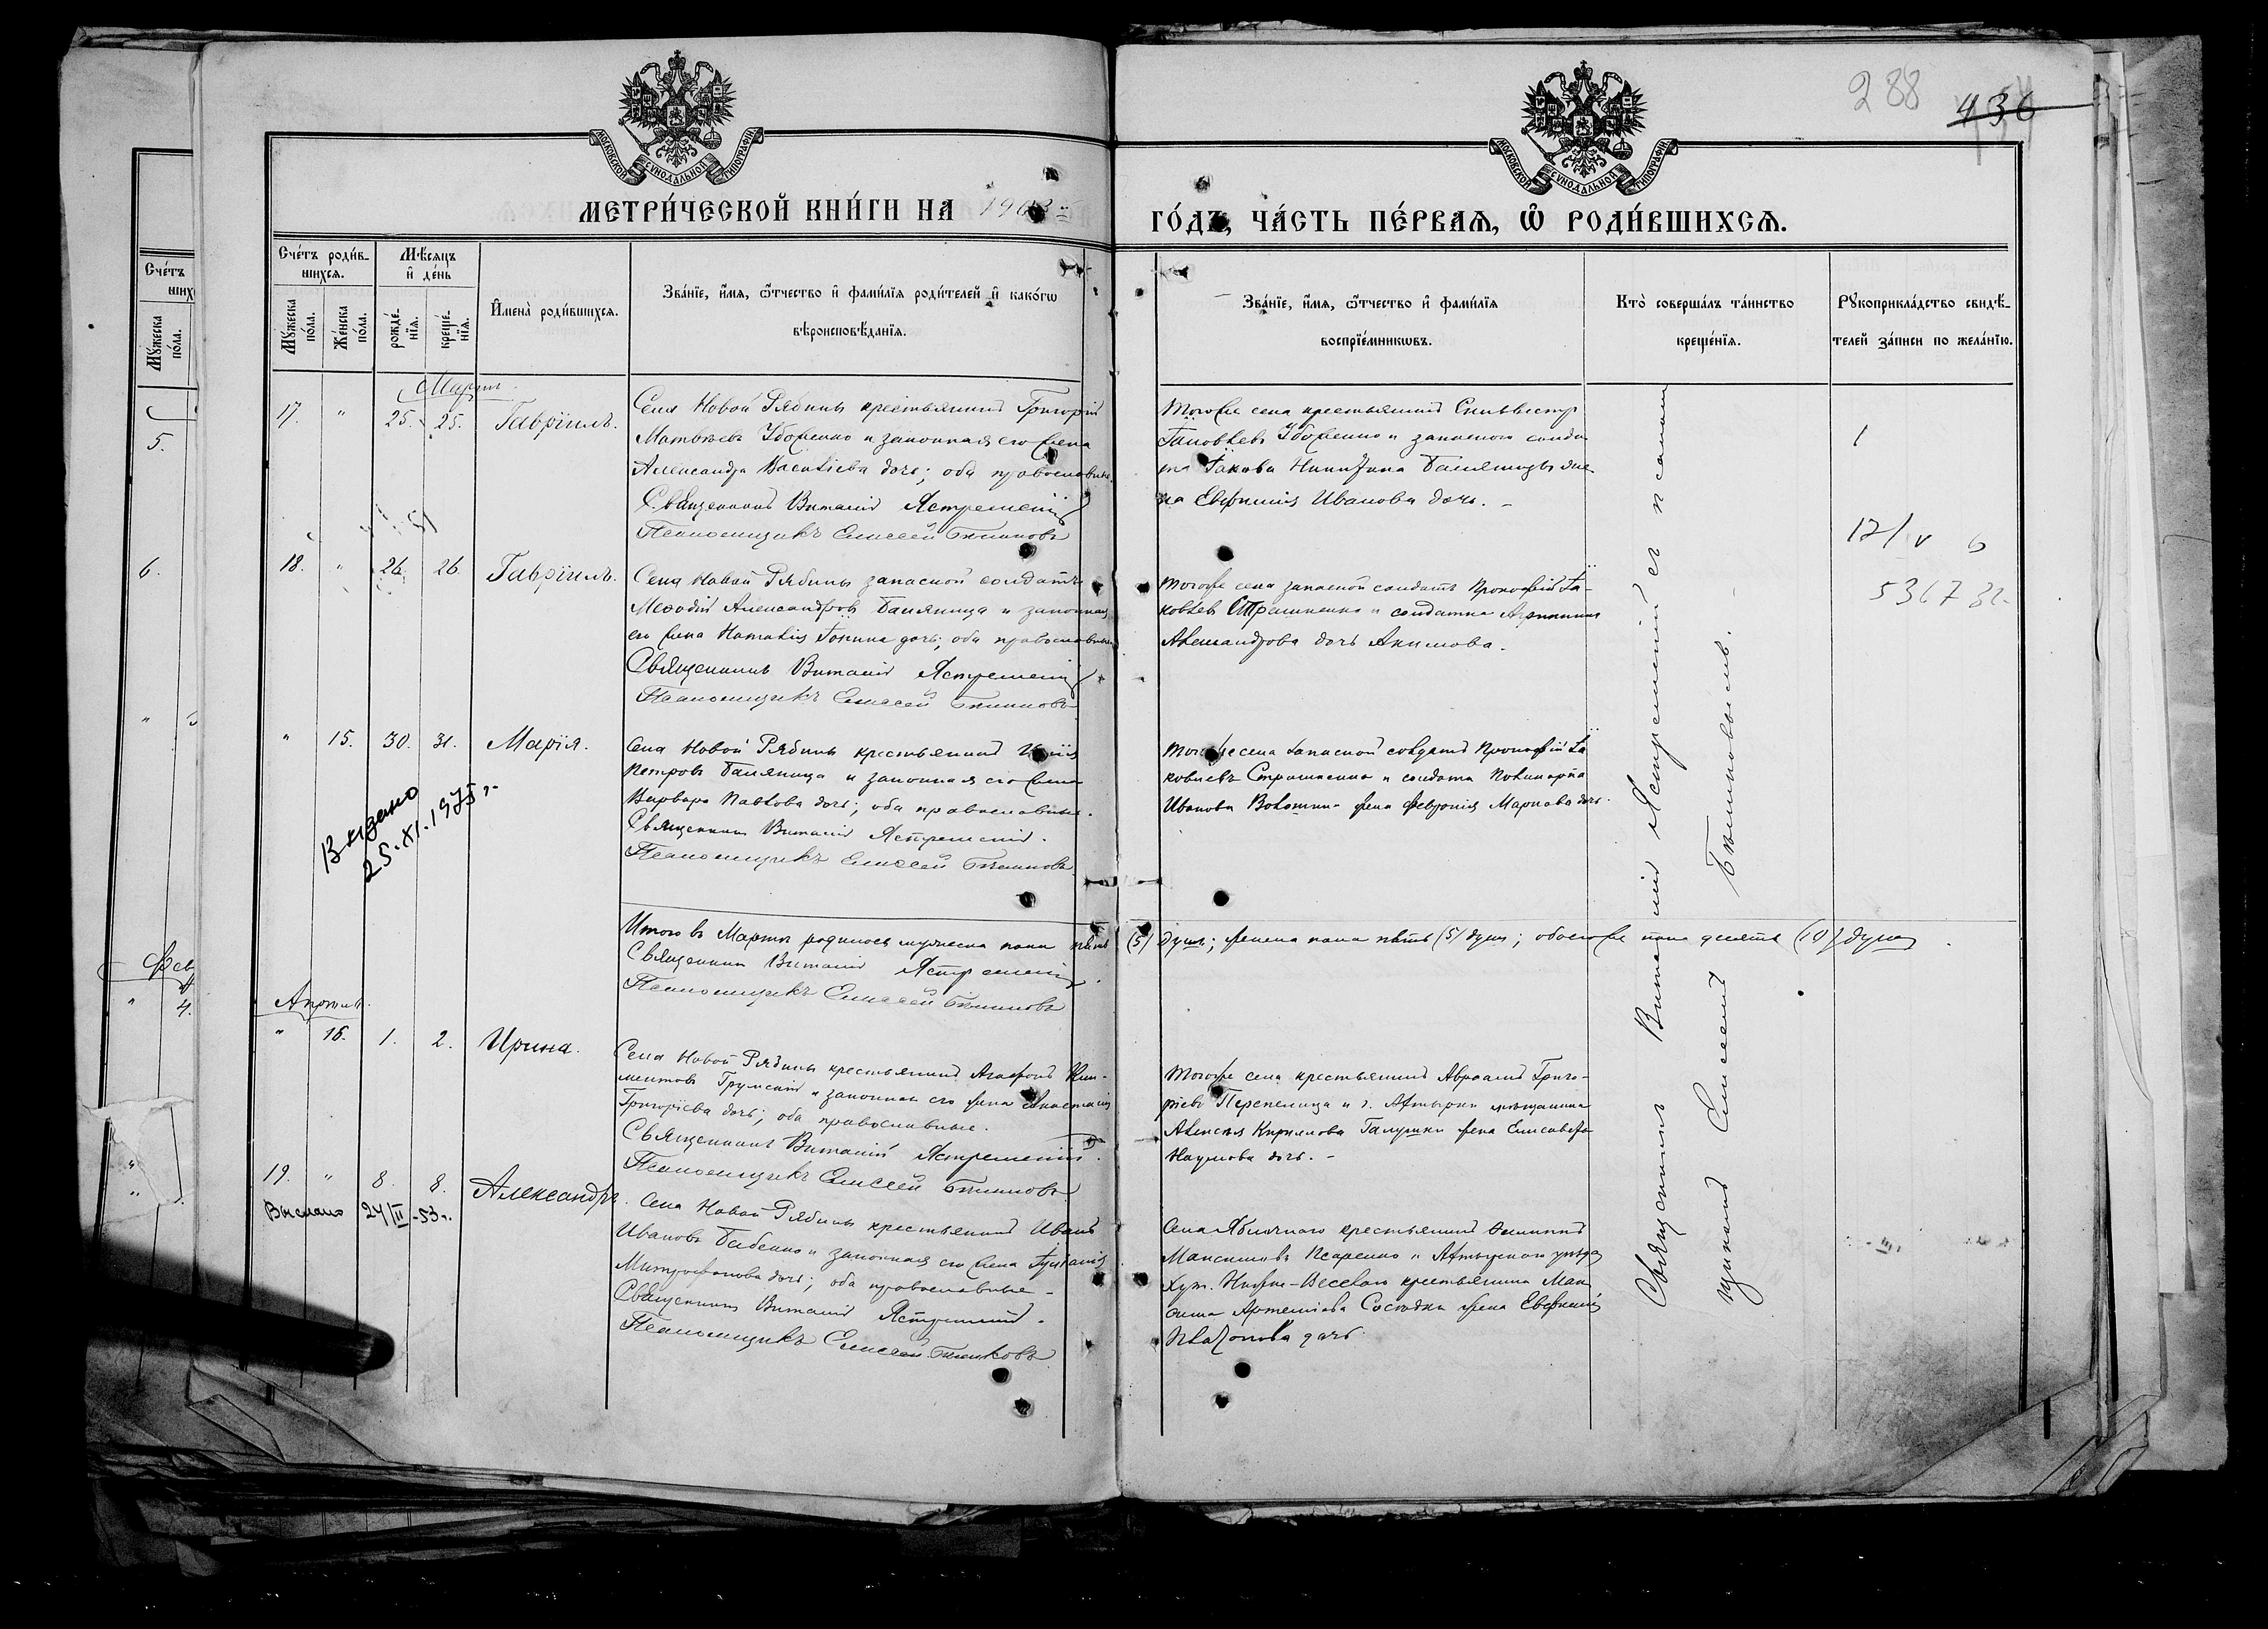 288
436
МОСКОВСКОЙ СѴНОДАЛЬНОЙ ТИПОГРАФІИ
МОСКОВСКОЙ СѴНОДАЛЬНОЙ ТИПОГРАФІИ
МЕТРИ́ЧЕСКОЙ КНИ́ГИ НА 1903
ГО́ДЪ, ЧА́СТЬ ПЕ́РВАЯ, Ѡ҆ РОДИ́ВШИХСЯ.
Сче́тъ роди́в-
шихся.
Мѣ́сяцъ
и҆ де́нь
Мꙋ́жеска по́ла.
Же́нска по́ла.
рожде́-
нїя.
креще́-
нїя.
И҆мена̀ роди́вшихся.
Зва́нїе, и҆́мя, ѻ҆́тчество и҆ фами́лїя роди́телей и҆ како́гѡ
вѣроисповѣ́данїя.
Зва́нїе, и҆́мя, ѻ҆́тчество и҆ фами́лїя
воспрїе́мникѡвъ.
Кто̀ соверша́лъ та́инство
креще́нїя.
Рꙋкоприкла́дство свидѣ́-
телей за́писи по жела́нїю.
Мартъ
17. " 25. 25. Гавріилъ.
Села Новой Рябины крестьянинъ Григорій
Матвѣевъ Убоженко и законная его жена
Александра Васильева дочь; оба православные.
Священникъ Виталій Ястремскій
Псаломщикъ Елисей
Тогоже села крестьянинъ Сильвестръ
Іаковлевъ Убоженко и запасного солда-
та Іакова Никитина жена
Евфимія Иванова дочь. -
18. " 26. 26. Гавріилъ.
Села Новой Рябины запасной солдатъ
Меѳодій Александровъ Баляница и законная
его жена Наталія дочь; оба православные
Священникъ Виталій Ястремскій
Псаломщикъ Елисей
Тогоже села запасной солдатъ Прокофій Іа-
ковлевъ Страшненко и солдатка
Александрова дочь Акимова.
12/V
5367
" 15. 30. 31. Марія.
Села Новой Рябины крестьянинъ
Петровъ Баляница и законная его жена
Варвара Павлова дочь; оба православные.
Священникъ Виталій Ястремскій.
Псаломщикъ Елисей
Тогоже села запасной солдатъ Прокофій Іа-
ковлевъ Страшненко и солдата
Иванова жена Февронія Маркова дочь.
Выдано
25.XI.1975 г.
Итого въ Мартѣ родилось мужеска пола пять (5) душъ; женска пола пять (5) душъ; обоего же пола десять (10) душъ.
Священникъ Виталій Ястремскій.
Псаломщикъ Елисей
Апрѣль.
" 16. 1. 2. Ирина.
Села Новой Рябины крестьянинъ Агафонъ Кли-
ментовъ и законная его жена Анастасія
Григоріева дочь; оба православные.
Священникъ Виталій Ястремскій.
Псаломщикъ Елисей
Тогоже села крестьянинъ Авраамъ Григо-
ріевъ Перепелица и г. Ахтырки мѣщанина
Алексѣя Кириллова Галушки жена Елисавета
Наумова дочь. -
19. " 8. 8. Александръ.
Выслано 24/II-53 г.
Села Новой Рябины крестьянинъ Иванъ
Ивановъ Бабенко и законная его жена Іуліанія
Митрофанова дочь; оба православные -
Священникъ Виталій Ястремскій.
Псаломщикъ Елисей
Села Яблочнаго крестьянинъ
Максимовъ Писаренко и Ахтырскаго уѣзда
Хут. Нижне-Веселаго крестьянина Мак-
сима Артеміева жена Евфимія
Платонова дочь.
Священникъ Виталій Ястремскій съ псалом-
щикомъ Елисеемъ
Счетъ
Мꙋ́жеска
по́ла.
5.
6.
Фев
4.